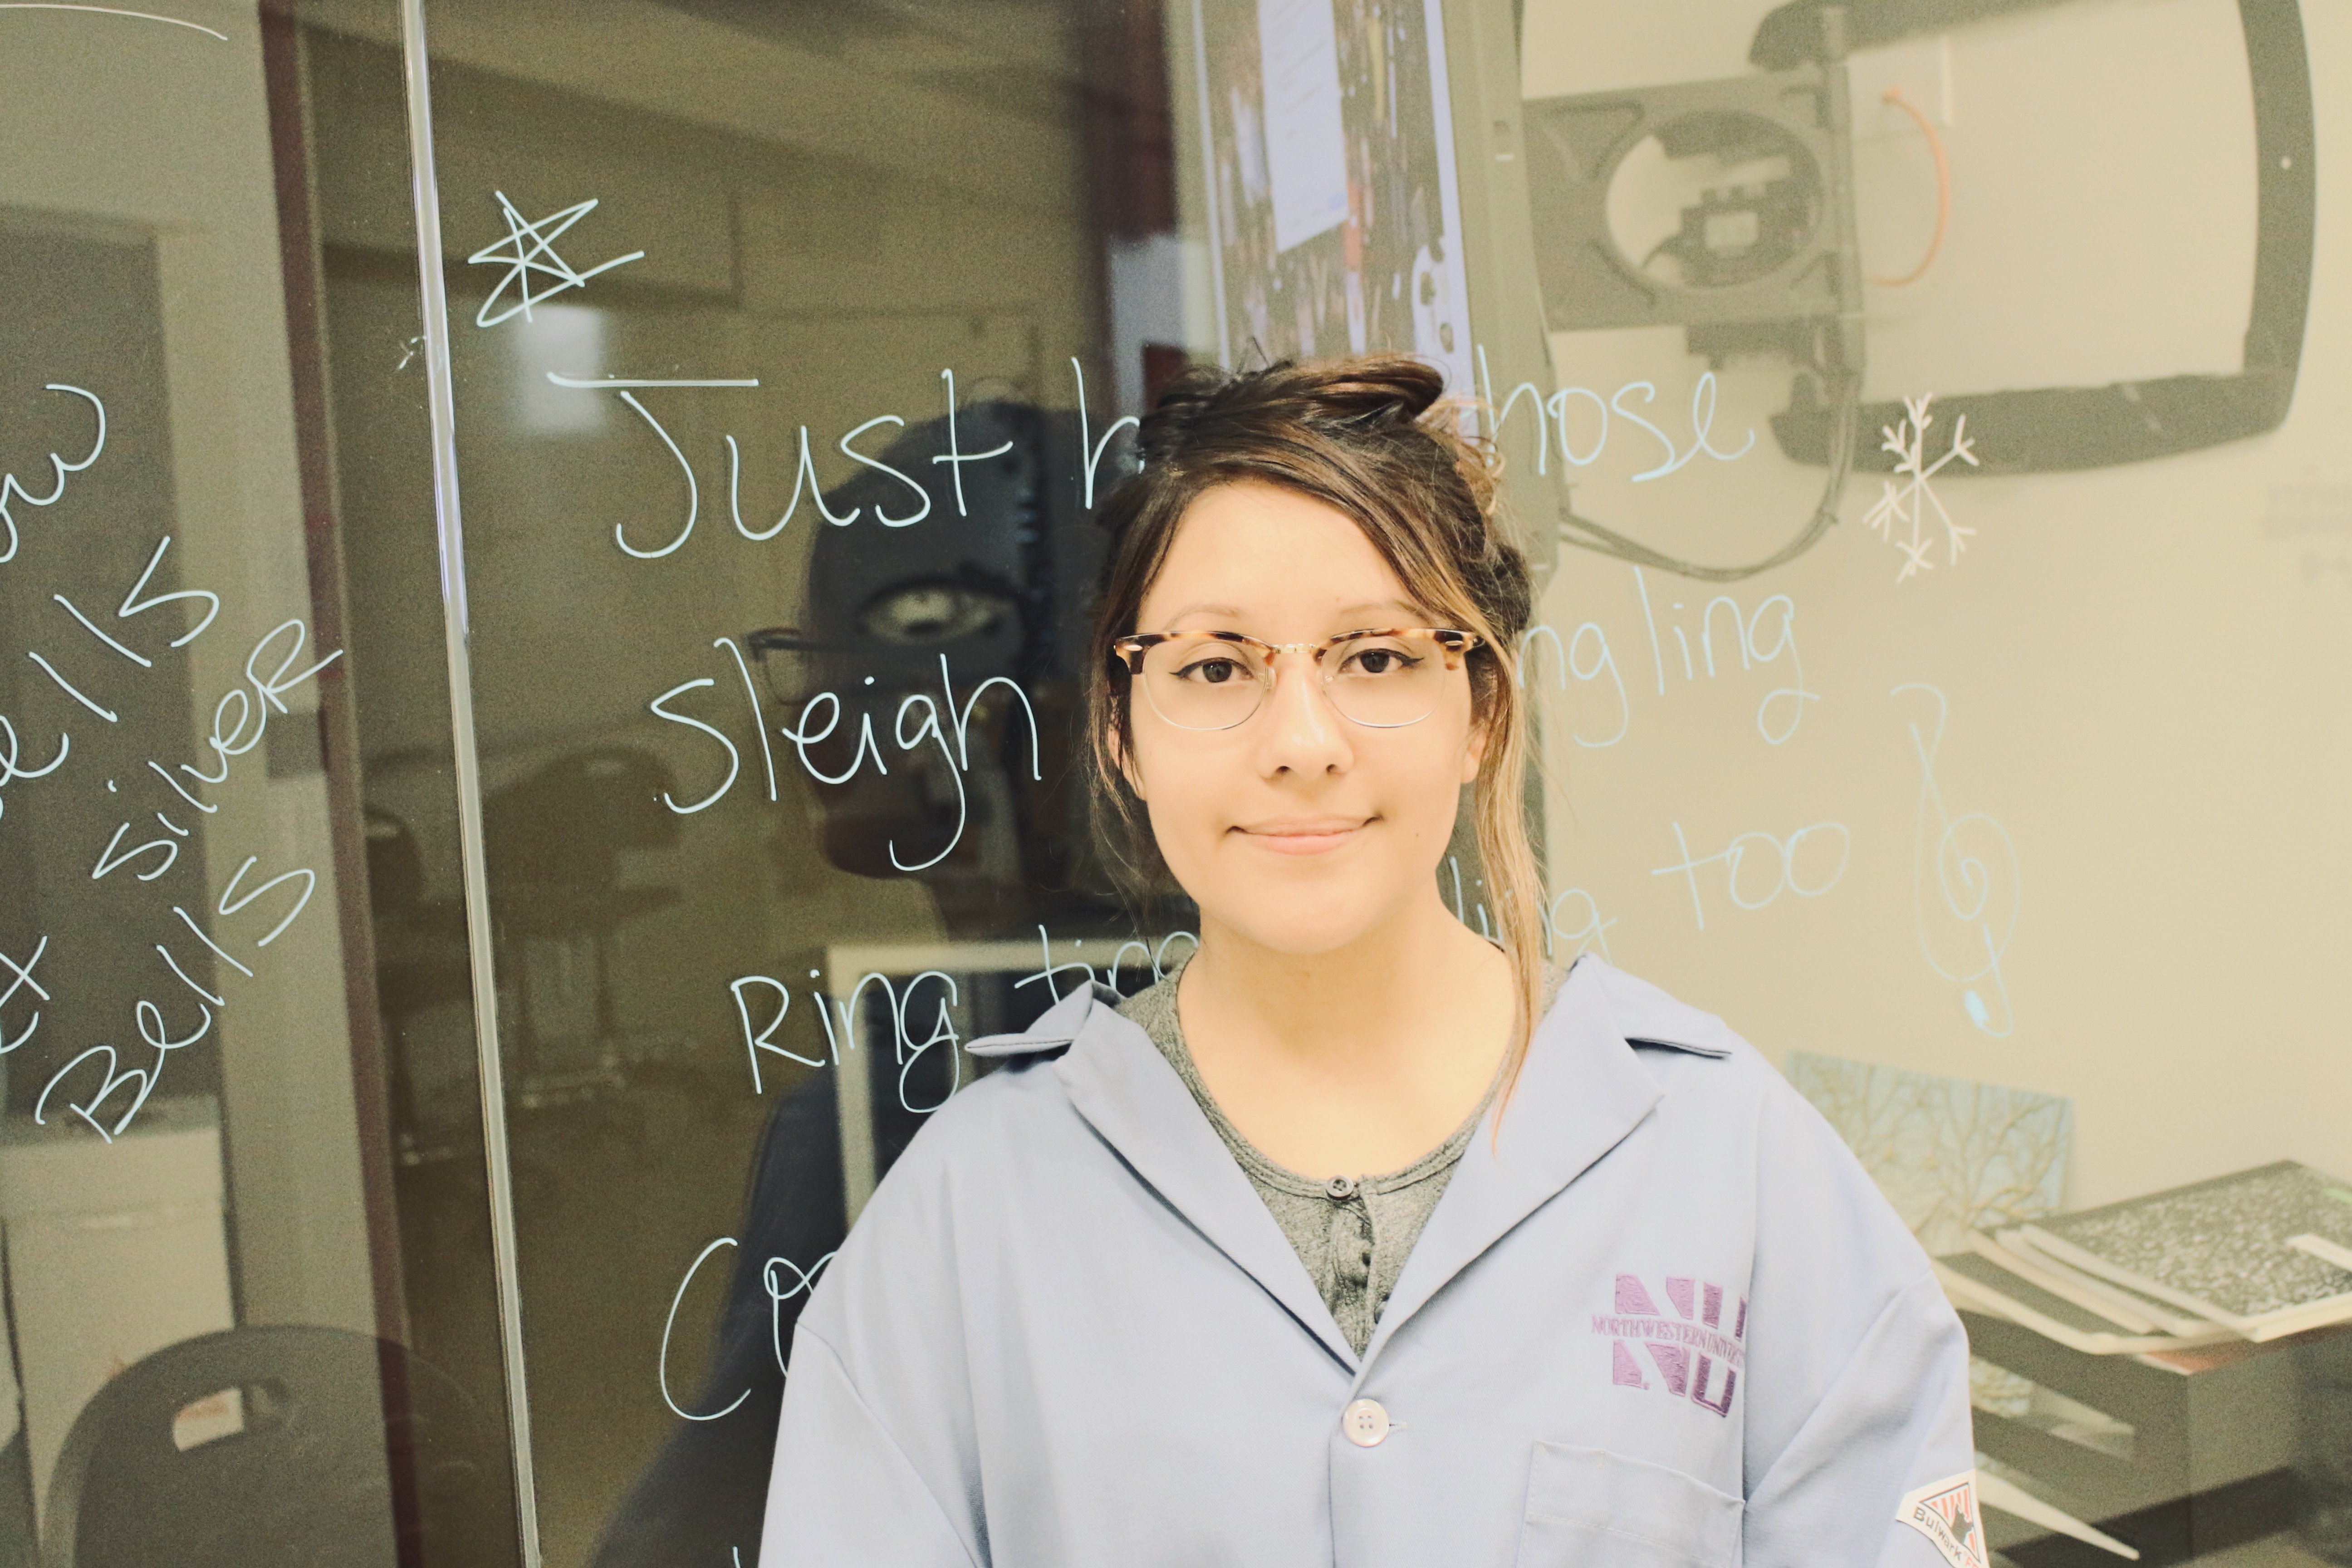 Bells
silver
Bells
Just hose
sleigh ngling
Ring ting ling too
NU
NORTHWESTERN UNIVERS
Bulwark